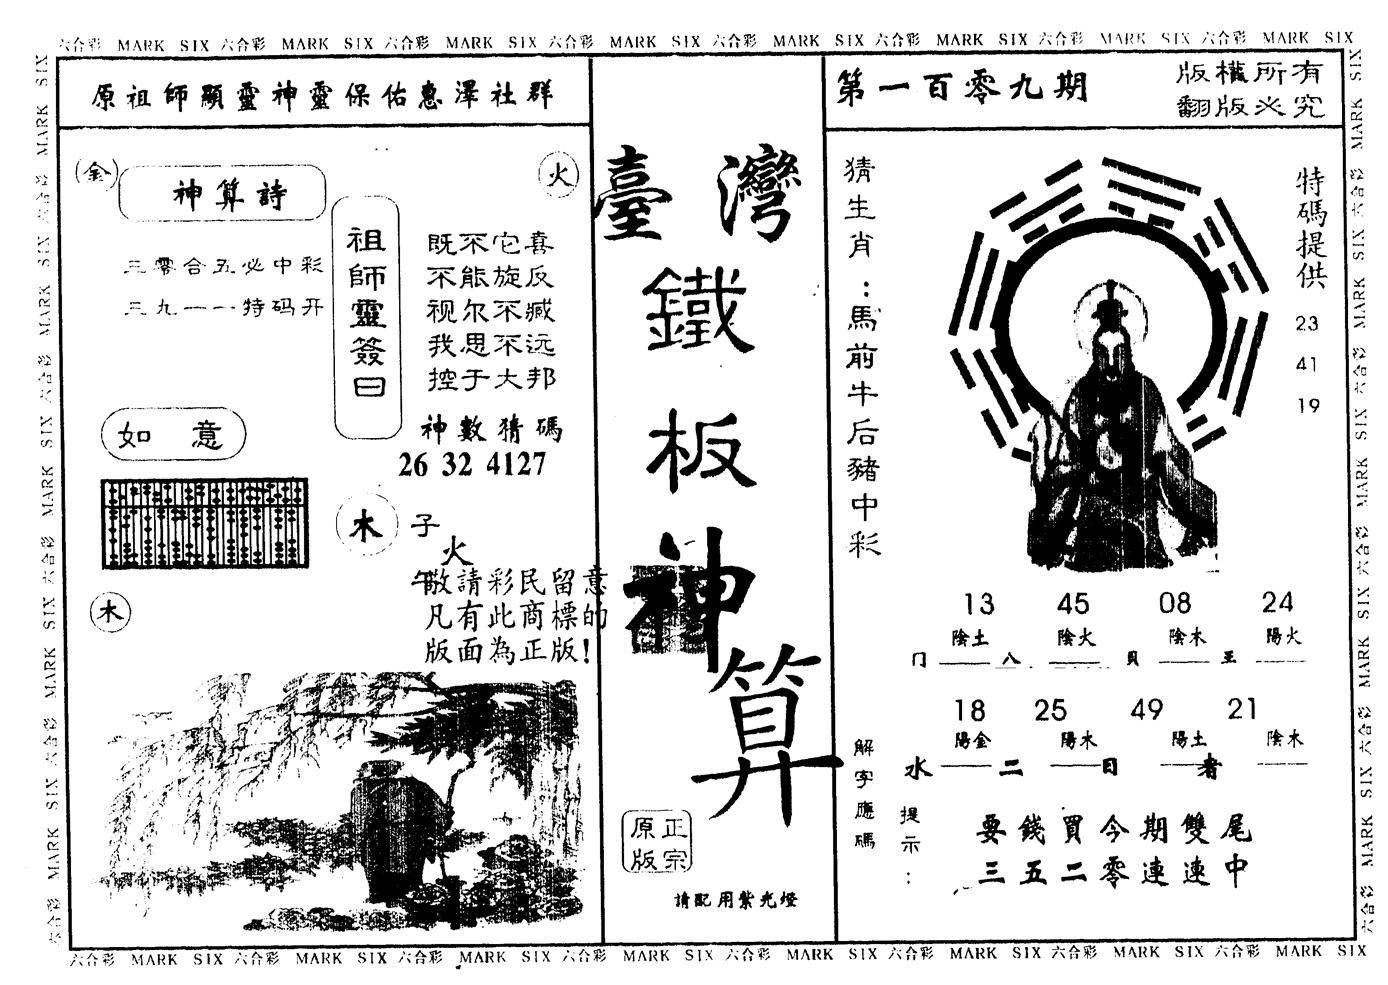 六合彩 MARK SIX 六合彩 MARK SIX 六合彩 MARK SIX 六合彩 MARK SIX 六合彩 MARK SIX 六合彩 MARK SIX 六合彩 MARK SIX 六合彩 MARK SIX
原祖師顯靈神靈保佑惠澤社群
金
神算詩
三零合五必中彩
三九一一特码开
如意
木
火
祖師靈簽曰
既不它喜
不能旋反
视尔不臧
我思不远
控于大邦
神數猜碼
26 32 4127
木
子
火
午
敬請彩民留意
凡有此商標的
版面為正版!
臺灣
鐵
板
神
算
正宗
原版
請配用紫光燈
第一百零九期
版權所有
翻版必究
猜生肖:馬前牛后豬中彩
特碼提供
23
41
19
13 45 08 24
陰土 陰火 陰木 陽火
门 八 貝 王
18 25 49 21
陽金 陽木 陽土 陰木
水 二 日 者
解字應碼
提示:
要錢買今期雙尾
三五二零連連中
六合彩 MARK SIX 六合彩 MARK SIX 六合彩 MARK SIX 六合彩 MARK SIX 六合彩 MARK SIX 六合彩 MARK SIX 六合彩 MARK SIX 六合彩 MARK SIX